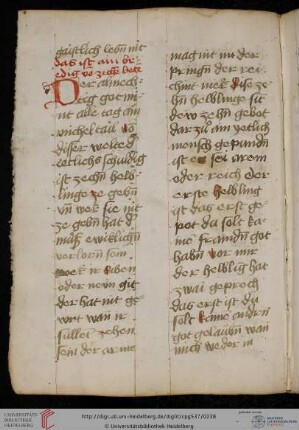 gaistlich lebn nit
das ist ain
Der almech
tig got
nit alle tag ain
michel tail
diser
etleichs schuldig
ist zechn helb
linge ze gebn
vn wer sie nit
ze gebn hat
ewiklichn
verlorn sein
oder newn git
der hat nit ge
wert wan
süllet zehen
sein der arme
mag nit mit der
der rei
chtu mer dise ze
hn helblinge sit
dew zehn gebot
dar zu ain yetlich
mensch gepundn
ist er sei arem
oder reich der
erste helbling
ist das erst ge
pot du solt ka
nne fraemdn got
habn vor mir
der helbling hat
zwai gesproch
das erst ist du
solt kaine andrn
got gelaubn wan
mich weder in
UNIVERSITÄTS-
BIBLIOTHEK
HEIDELBERG
http://digi.ub.uni-heidelberg.de/diglit/cpg537/0278
© Universitätsbibliothek Heidelberg